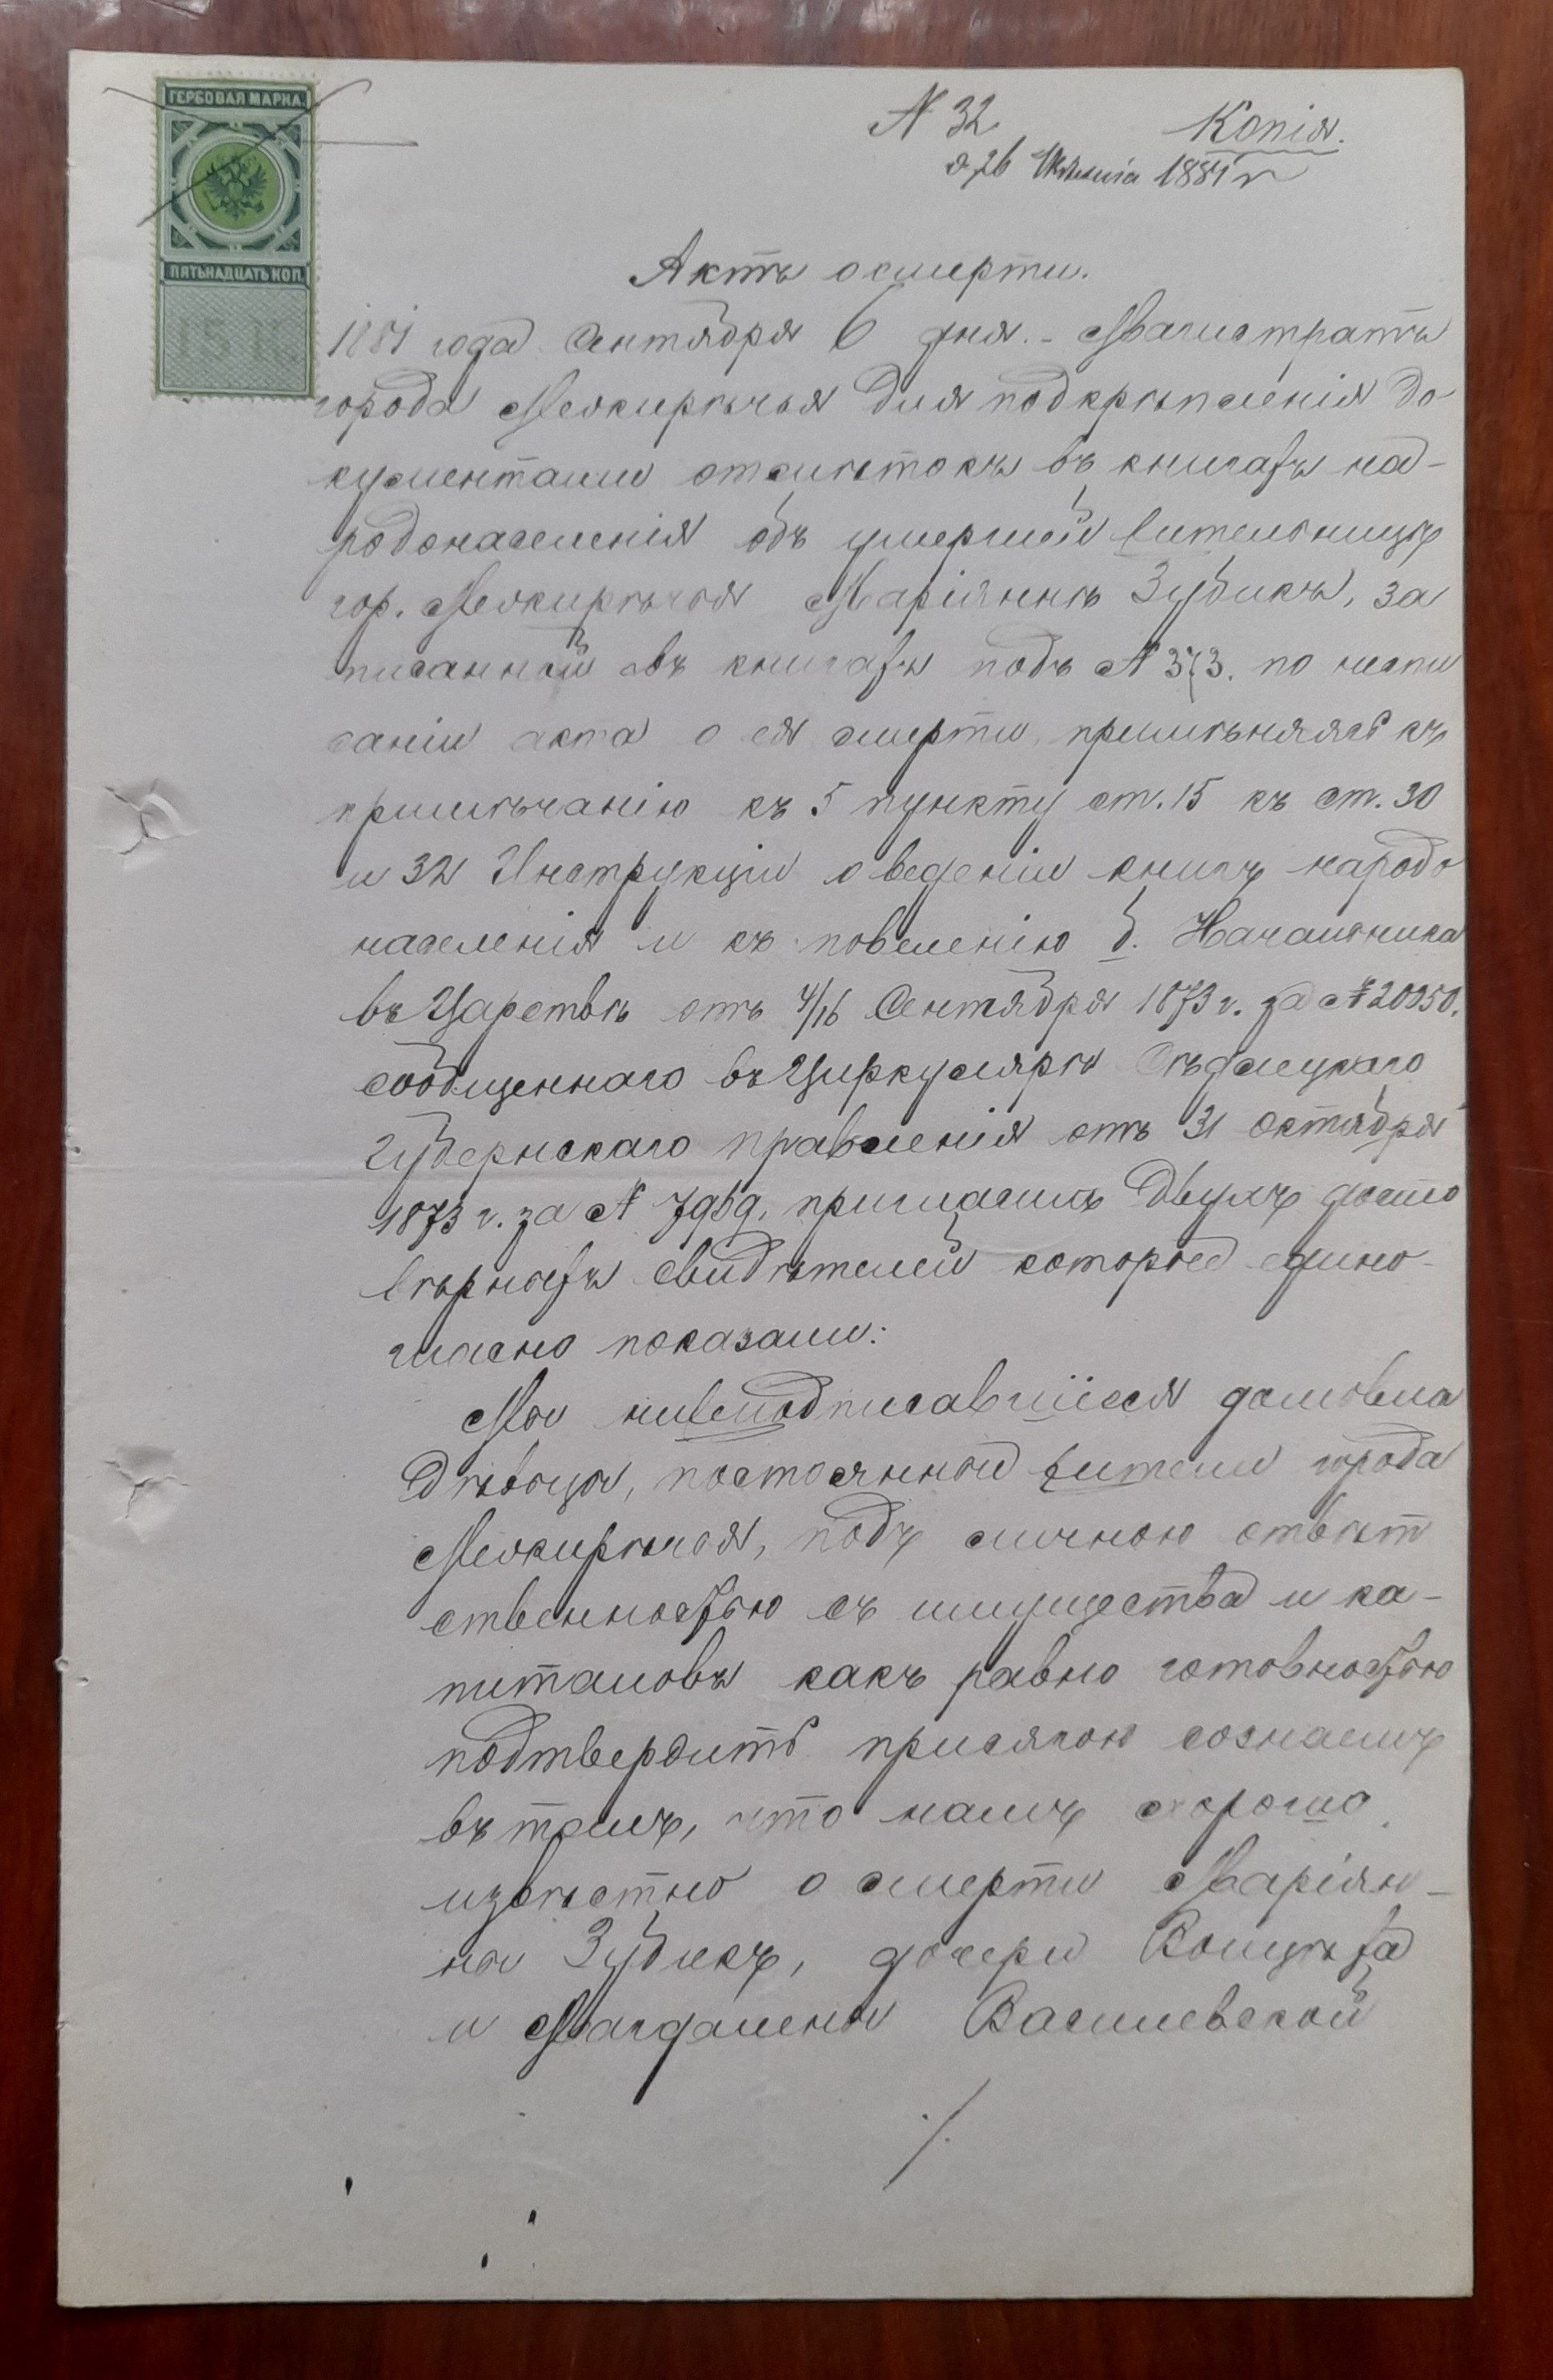 ГЕРБОВАЯ МАРКА.
ПЯТЬНАДЦАТЬ КОП.
N 32
Копія.
26 1881 г
Актъ о смерти.
1881 года Сентября 6 дня. - Магистратъ
города Межирѣчья для подкрѣпленія до
кументами отмѣтокъ въ книгахъ на-
родонаселенія объ умершей жительницѣ
гор. Межирѣчья Маріяннѣ Зубикъ, за
писанной въ книгахъ подъ N 373. по неспи
саніи акта о ея смерти, примѣняясь къ
примѣчанію къ 5 пункту ст. 15 къ ст. 30
и 32 Инструкціи о веденіи книгъ народо
населенія и къ повеленію б. Начальника
въ Царствѣ отъ 4/16 Сентября 1873 г. за N 20350.
сообщеннаго въ Циркулярѣ Сѣдлецкаго
Губернскаго правленія отъ 31 Октября
1873 г. за N 7969, пригласилъ двухъ досто
вѣрныхъ свидѣтелей которые едино-
гласно показали:
Мы нижеподписавшіися домовла
дѣльцы, постоянные жители города
Межирѣчья, подъ личною отвѣт
ственностью съ имущества и ка-
питаловъ какъ равно готовностью
подтвердить присягою сознаемъ
въ томъ, что намъ хорошо
извѣстно о смерти Маріян-
ны Зубикъ, дочери Войцѣха
и Магдалены Василевской
./.